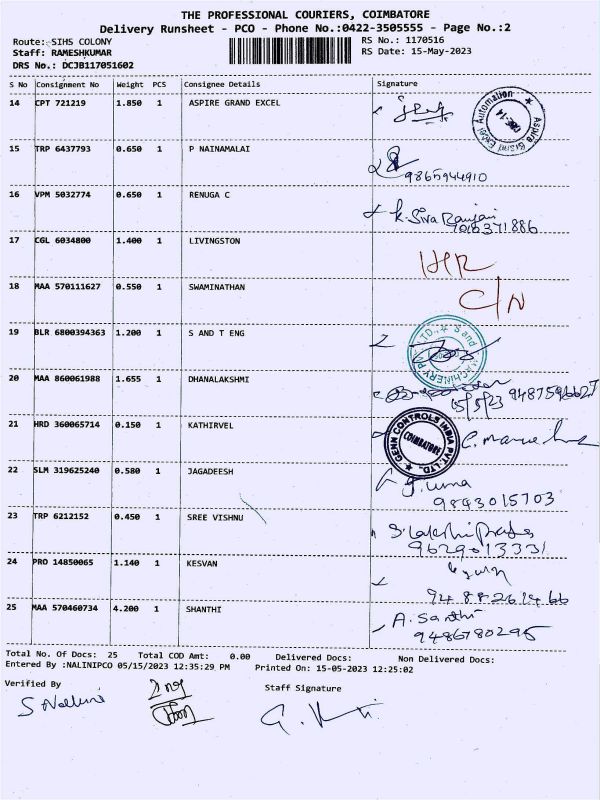 THE PROFESSIONAL COURIERS, COIMBATORE
Delivery Runsheet - PCO - Phone No.:0422-3505555 - Page No.:2
Route: SIHS COLONY RS No.: 1170516
Staff: RAMESHKUMAR RS Date: 15-May-2023
DRS No.: DCJB117051602
S No Consignment No Weight PCS Consignee Details Signature
14 CPT 721219 1.850 1 ASPIRE GRAND EXCEL
Aspire Grand Excel Automation CBE-14
15 TRP 6437793 0.650 1 P NAINAMALAI
9865944910
16 VPM 5032774 0.650 1 RENUGA C
K. Siva Ranjani
17 CGL 6034800 1.400 1 LIVINGSTON
18 MAA 570111627 0.550 1 SWAMINATHAN
C/N
19 BLR 6800394363 1.200 1 S AND T ENG
20 MAA 860061988 1.655 1 DHANALAKSHMI
15/5/23 9487596627
21 HRD 360065714 0.150 1 KATHIRVEL
GENN CONTROLS INDIA PVT. LTD. COIMBATORE
22 SLM 319625240 0.580 1 JAGADEESH
J. uma
9843015703
23 TRP 6212152 0.450 1 SREE VISHNU
9629013331
24 PRO 14850065 1.140 1 KESVAN
25 MAA 570460734 4.200 1 SHANTHI
A. Santhi
9486780295
Total No. Of Docs: 25 Total COD Amt: 0.00 Delivered Docs: Non Delivered Docs:
Entered By :NALINIPCO 05/15/2023 12:35:29 PM Printed On: 15-05-2023 12:25:02
Verified By Staff Signature
S Nalini